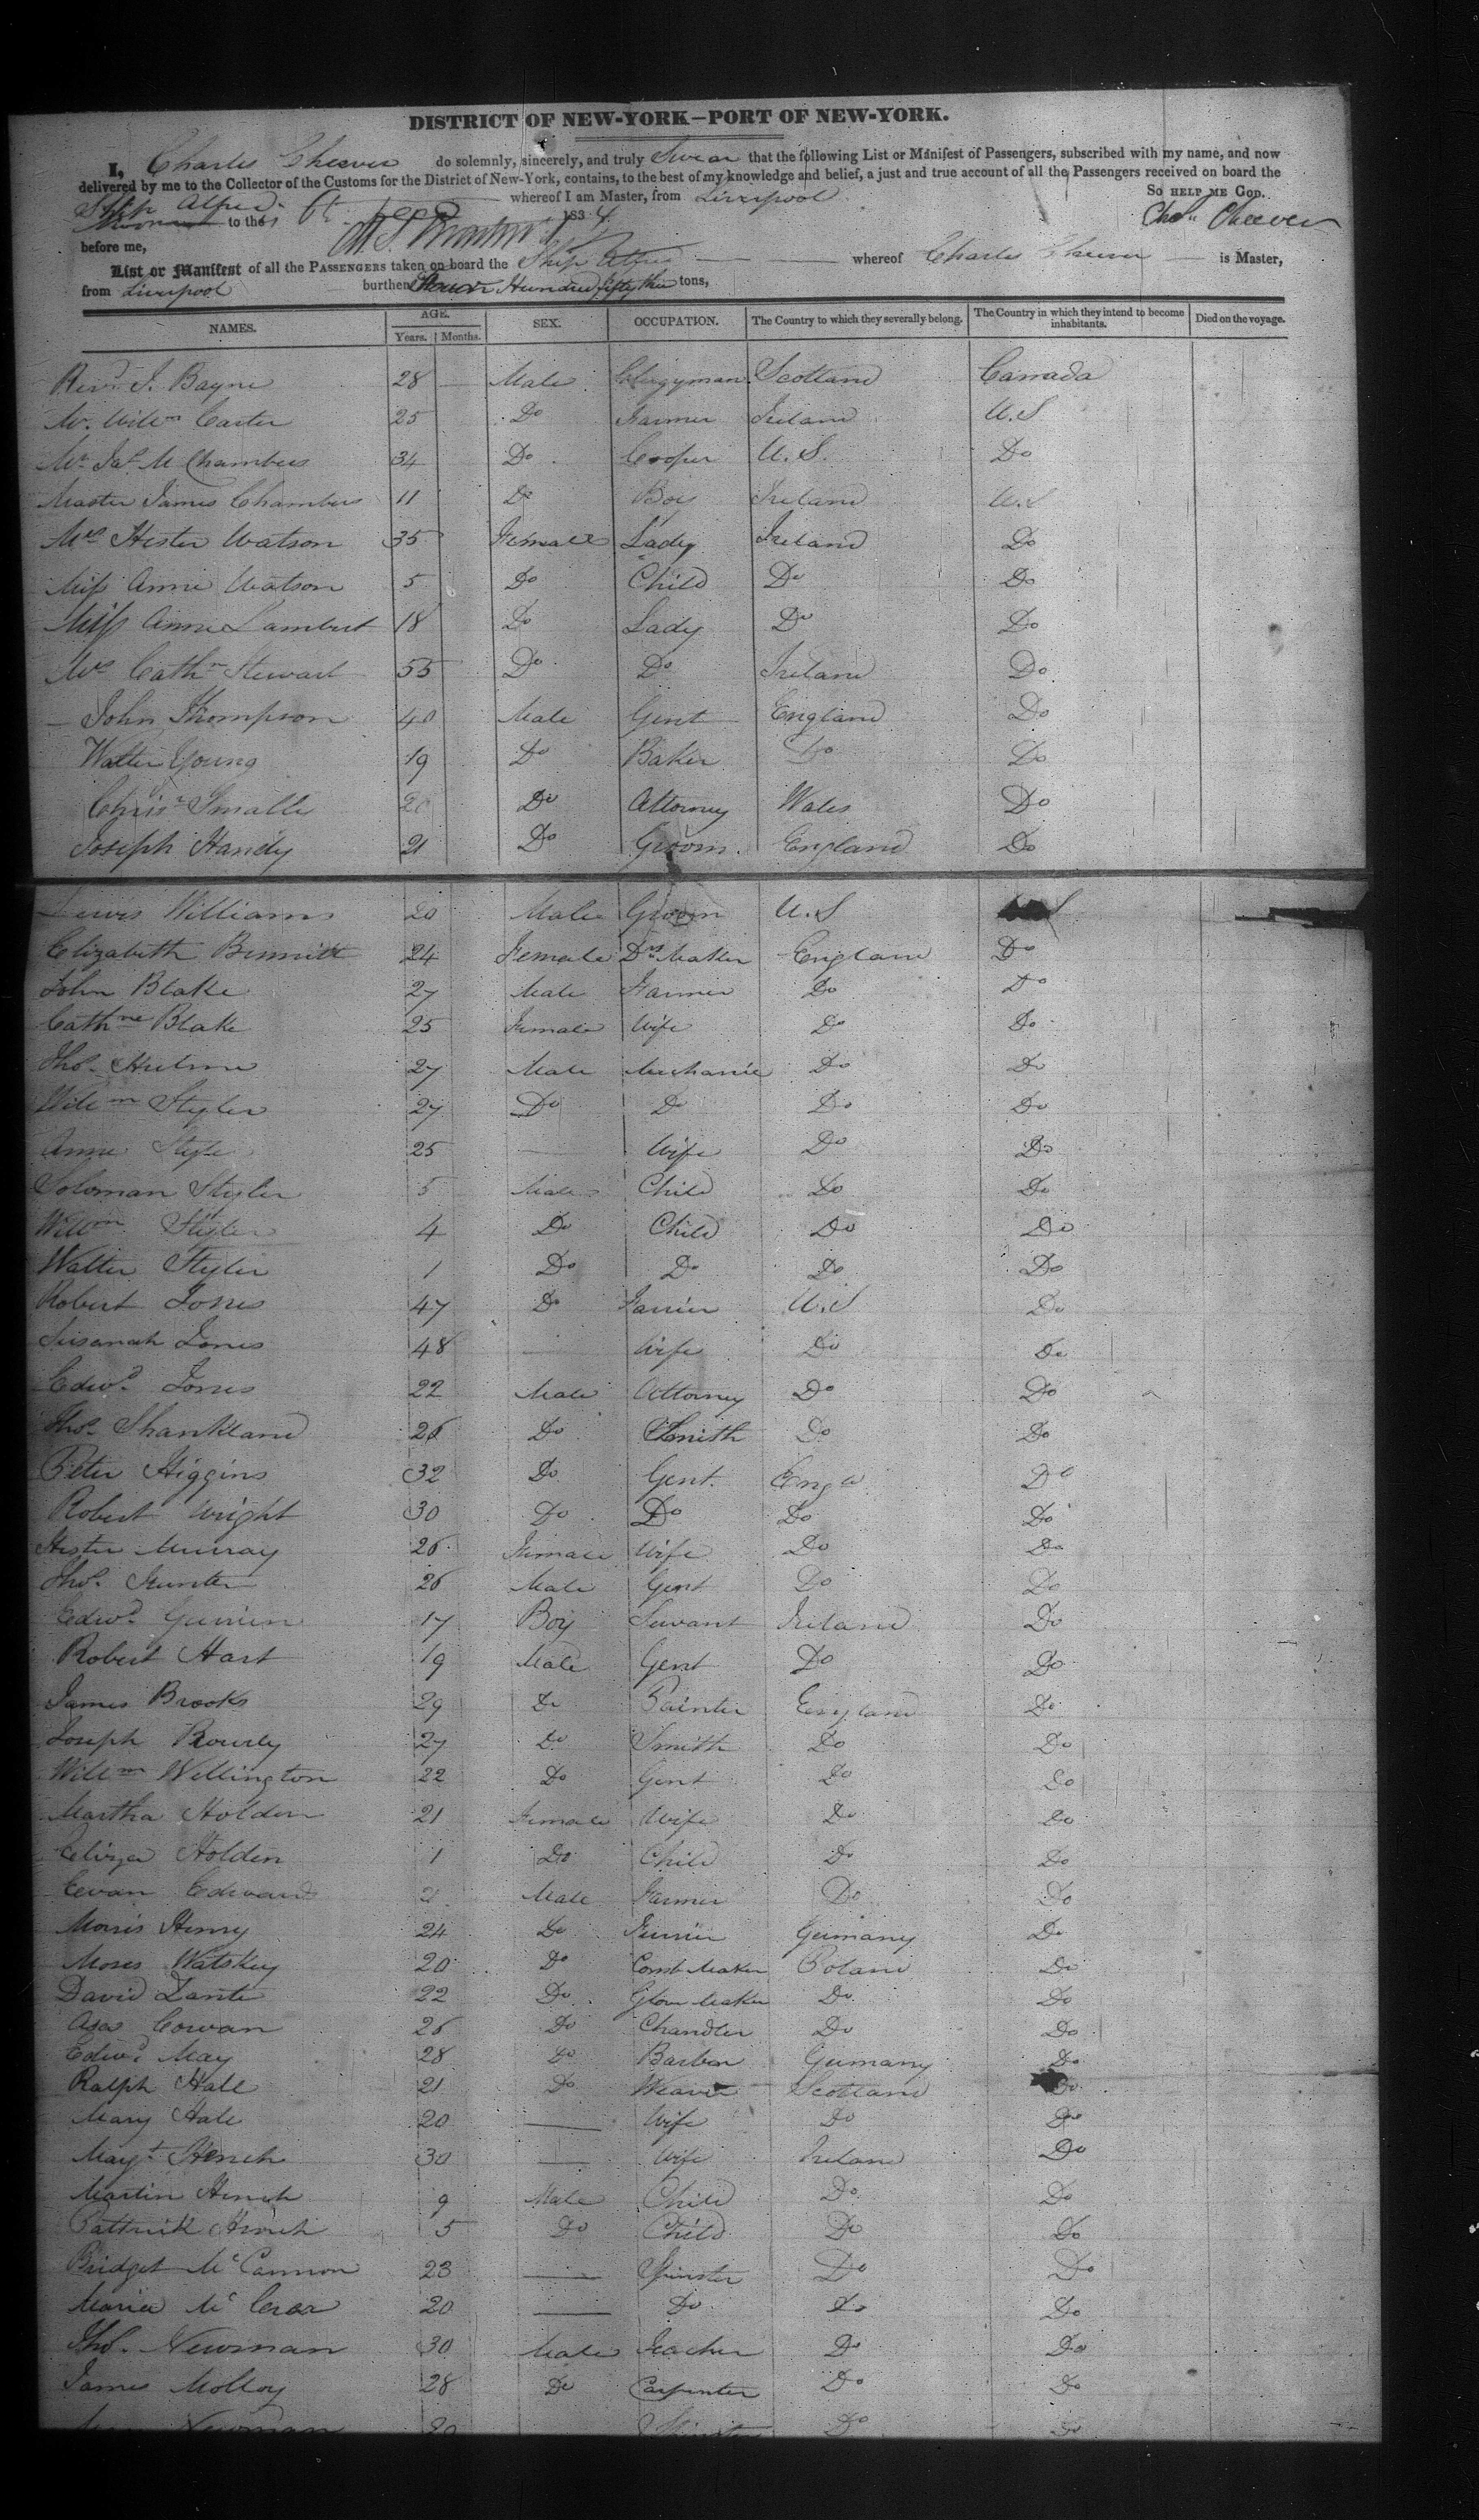 DISTRICT OF NEW-YORK—PORT OF NEW-YORK.
I, Charles Cheever do solemnly, sincerely, and truly Swear that the following List or Manifest of Passengers, subscribed with my name, and now
delivered by me to the Collector of the Customs for the District of New-York, contains, to the best of my knowledge and belief, a just and true account of all the Passengers received on board the
Ship Alfred whereof I am Master, from Liverpool So HELP ME GOD.
to the 183 4 Chas Cheever
before me,
List or Manifest of all the PASSENGERS taken on board the Ship Alfred whereof Charles Cheever is Master,
from Liverpool burthen Hundred fifty three tons,
NAMES. AGE. SEX. OCCUPATION. The Country to which they severally belong. The Country in which they intend to become inhabitants. Died on the voyage.
Years. Months.
Revd J. Bayne 28 Male Clergyman Scotland Canada
Mr. Willm Carter 25 Do Farmer Ireland U.S
Mr Jas M Chambers 34 Do Cooper U.S. Do
Master James Chambers 11 Do Boy Ireland U.S
Mrs Hester Watson 35 Female Lady Ireland Do
Miss Anne Watson 5 Do Child Do Do
Miss Anne Lambert 18 Do Lady Do Do
Mrs Cathn Stewart 55 Do Do Ireland Do
John Thompson 40 Male Gent England Do
Walter Young 19 Do Baker Do Do
Chrisr Smalls Do Attorney Wales Do
Joseph Handy 21 Do Groom. England Do
Lewis Williams 20 Male Groom U.S
Elizabeth Bennett 24 Female Drs Maker England Do
John Blake 27 Male Farmer Do Do
Cathne Blake 25 Female Wife Do Do
Thos Hulme 27 Male Mechanic Do Do
Willm Styler 27 Do Do Do Do
Anne Style 25 — Wife Do Do
Soloman Styler 5 Male Child Do Do
Willm Styler 4 Do Child Do Do
Walter Styler 1 Do Do Do Do
Robert Jones 47 Do U.S Do
Susanah Jones 48 — Wife Do Do
Edwd Jones 22 Male Attorney Do Do
Thos Shankland 26 Do Smith Do Do
Peter Higgins 32 Do Gent. Engd Do
Robert Wright 30 Do Do Do Do
Hester Murray 26 Female Wife Do Do
Thos Hunter 26 Male Gent Do Do
Edwd 17 Boy Servant Ireland Do
Robert Hart 19 Male Gent Do Do
James Brooks 29 Do Painter England Do
Joseph 27 Do Smith Do Do
Willm Wellington 22 Do Gent Do Do
Martha Holden 21 Female Wife Do Do
Eliza Holden 1 Do Child Do Do
Evan Edwards Male Farmer Do Do
Morris Henry 24 Do Furrier Germany Do
Moses Watskey 20 Do Comb Maker Poland Do
David 22 Do Glove Maker Do Do
Asa Cowan 26 Do Chandler Do Do
Edwd May 28 Do Barber Germany Do
Ralph Hale 21 Do Weaver Scotland Do
Mary Hale 20 — Wife Do Do
Magt Hench 30 — Wife Ireland Do
Martin Hench 9 Male Child Do Do
Pattrick Hench 5 Do Child Do Do
Bridget McCannon 23 — Spinster Do Do
Maria Mc 20 — Do Do Do
Thos Newman 30 Male Teacher Do Do
James Molloy 28 Do Carpenter Do Do
Newman Spinster Do Do